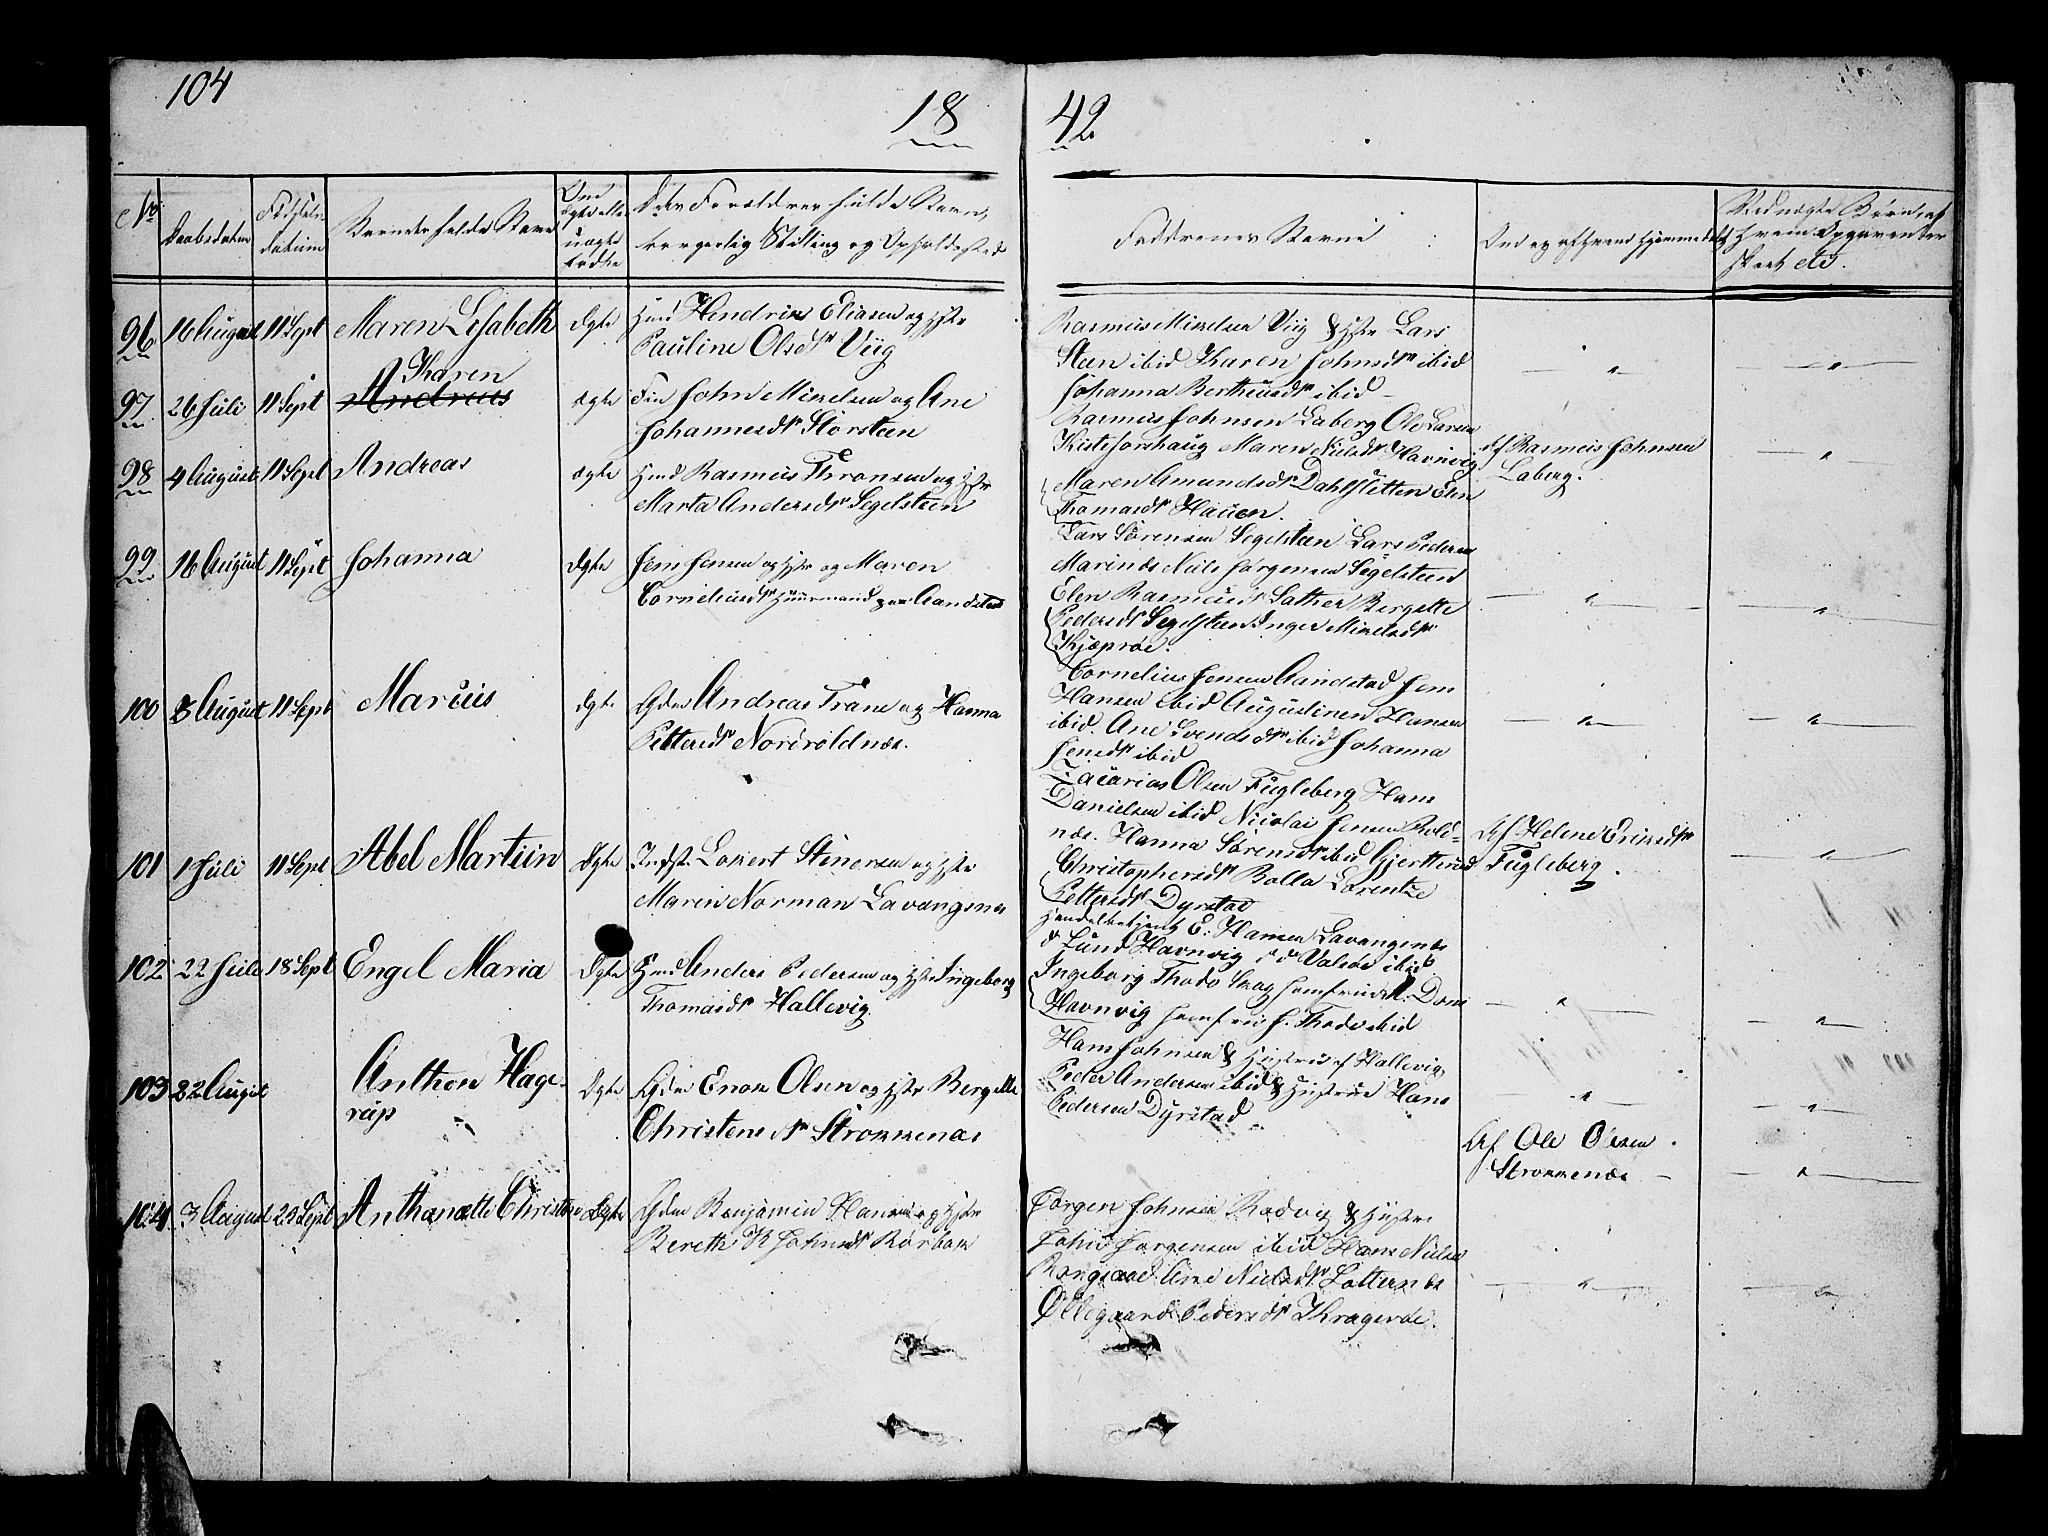 104
18
42
No
Daabsdatum
Fødsels-
datum
Barnets fulde Navn
Om
ægte eller
uægte
født
Dets Forældres fulde Navn,
borgerlig Stilling og Opholdssted
Faddernes Navne
Om og af hvem hjemmedøbt
Ved uægte Børn, af
hvem Opgaven er
skeet etc.
96 16 August 11 Sept Maren Lisabeth ægte Hmd Hendrik Eliasen og Hstr
Pauline Olsdr Viig
Rasmus Mikelsen Viig & Hstr Lars
Steen ibid Karen Johnsdr ibid
Johanna Berthusdr ibid
97 26 Juli 11 Sept Karen
Andreas
ægte Fin John Mikelsen og Ane
Johannesdr Storsteen
Rasmus Johnsen Laberg Ole Larsen
Maren Nielsdr Havnvig
Maren Amundsdr Dahlsletten Elen
Thomasdr Hauen.
Af Rasmus Johnsen
Laberg.
98 4 August 11 Sept Andreas ægte Hmd Rasmus Thronsen og Hstr
Marta Andersdr Segelsteen
Lars Sørensen Segelsteen Lars Pedersen
Niels Jørgensen Segelsteen
Elen Rasmusdr Sather Bergette
Pedersdr Segelsteen Inger Mikelsdr
Kjøprøe.
99 16 August 11 Sept Johanna ægte Jens Jensen og Hstr og Maren
Corneliusdr Huusmand paa Aandstad
Cornelius Jensen Aandstad Jens
Hansen ibid Augustinen Hansen
ibid. Ane Svendsdr ibid Johanna
Jensdr ibid
100 8 August 11 Sept Marcus ægte Gdm Andreas Trane og Hanna
Pettersdr Nordroldnæs.
Zacarias Olsen Fugleberg Hans
Danielsen ibid Nicolai Jensen Rold-
næs. Hanna Sørensdr ibid Gjertrud
Christophersdr Bolla Lorentze
Pettersdr Dyrstad
101 1 Juli 11 Sept Abel Martiin ægte Indst. Lokert Stenersen og Hstr
Maren Norman Lavangenæs
Handelbetjent E. Hansen Lavangenæs
do Lund Havnvig do do Valsøe ibid
Ingeborg Thode Skog Jomfrue Dons
Havnvig Jomfrue J. Thode ibid
Af Helene Eriksdr
Fugleberg.
102 22 Juli 18 Sept Engel Maria ægte Hmd Anders Pedersen og Hstr Ingeborg
Thomasdr Hallevig
Hans Johnsen & Hustrue af Hallevig
Peder Andersen ibid & Hustrue Hans
Pedersen Dyrstad
103 22 August Anthon Hage-
rup
ægte Gdm Enok Olsen og Hstr Bergitte
Christensdr Strokkenæs
Af Ole Olsen
Strokkenæs
104 3 August 22 Sept Anthanette Christine ægte Gdm Benjamin Hansen og Hstr
Bereth K Johnsdr Rørbak
Jørgen Johnsen Rodvig & Hustrue
John Jørgensen ibid Hans Nielsen
Rongaae Ane Nielsdr Lotternæs
Ollegaard Pedersdr Kragerøe.